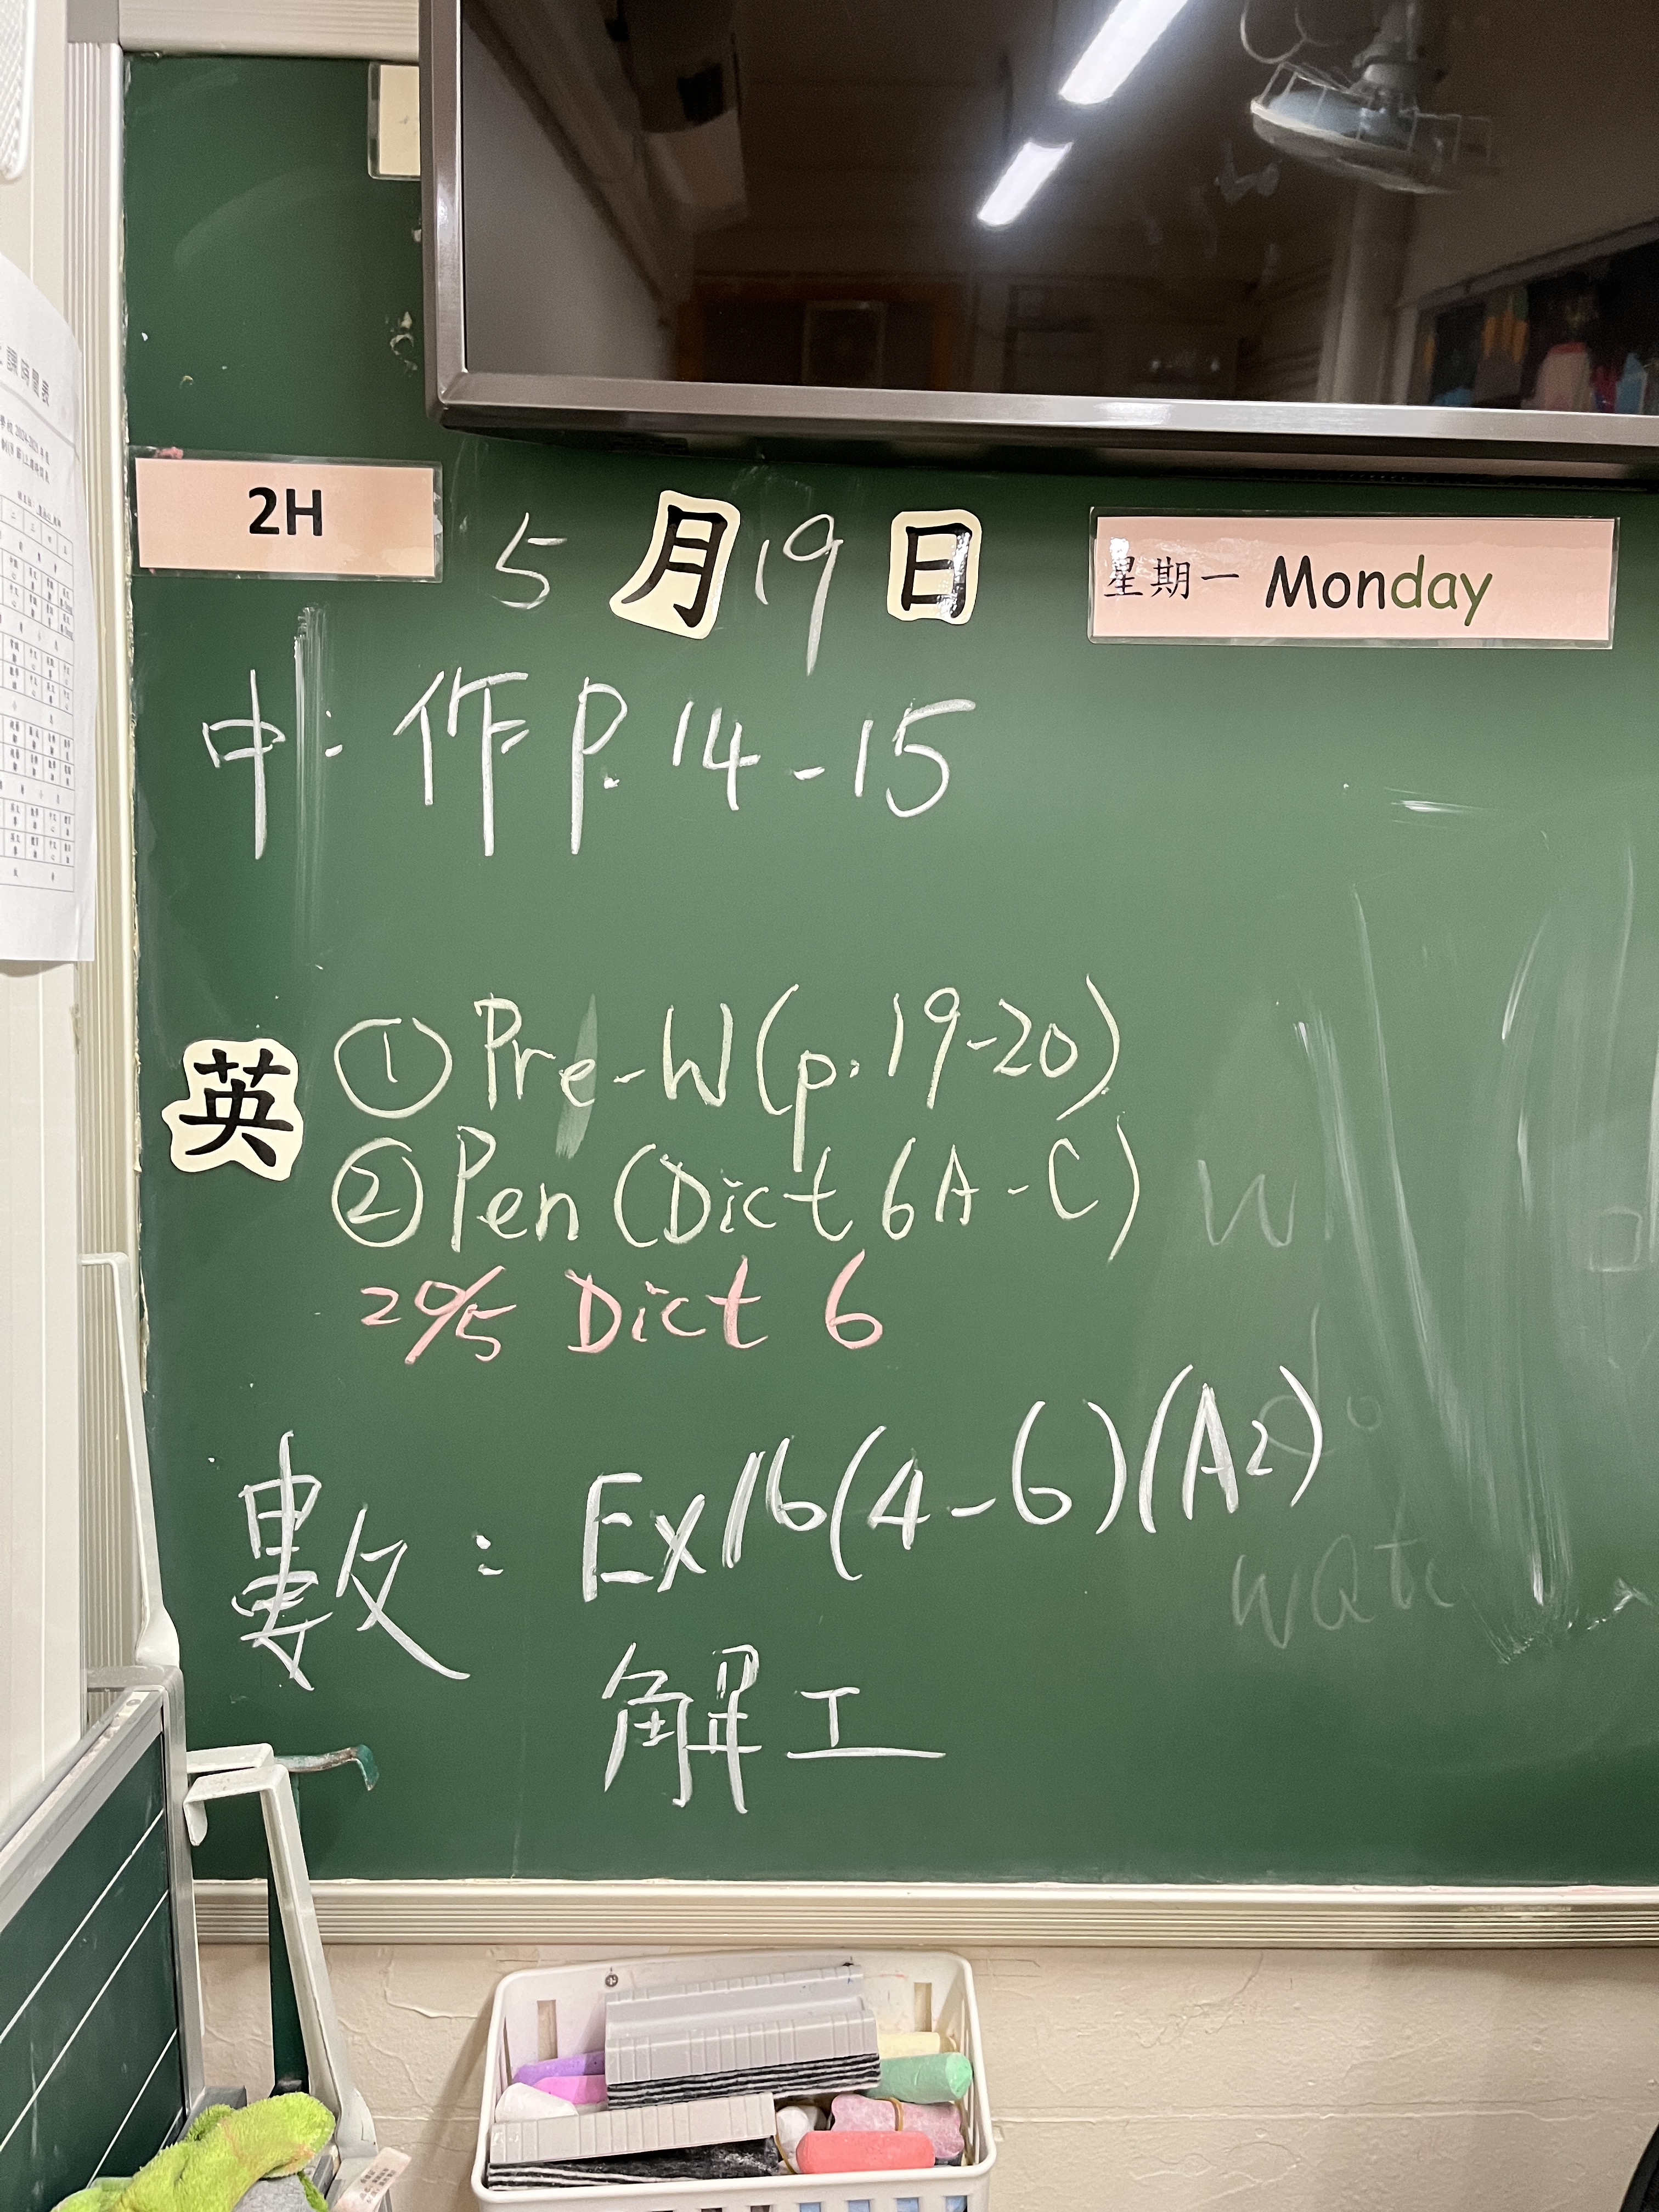 2H 5月19日 星期一 Monday
中: 作 P. 14-15
英 ① Pre-W (p. 19-20)
② Pen (Dict 6A-C)
20/5 Dict 6
數: Ex16(4-6)(A2)
解工